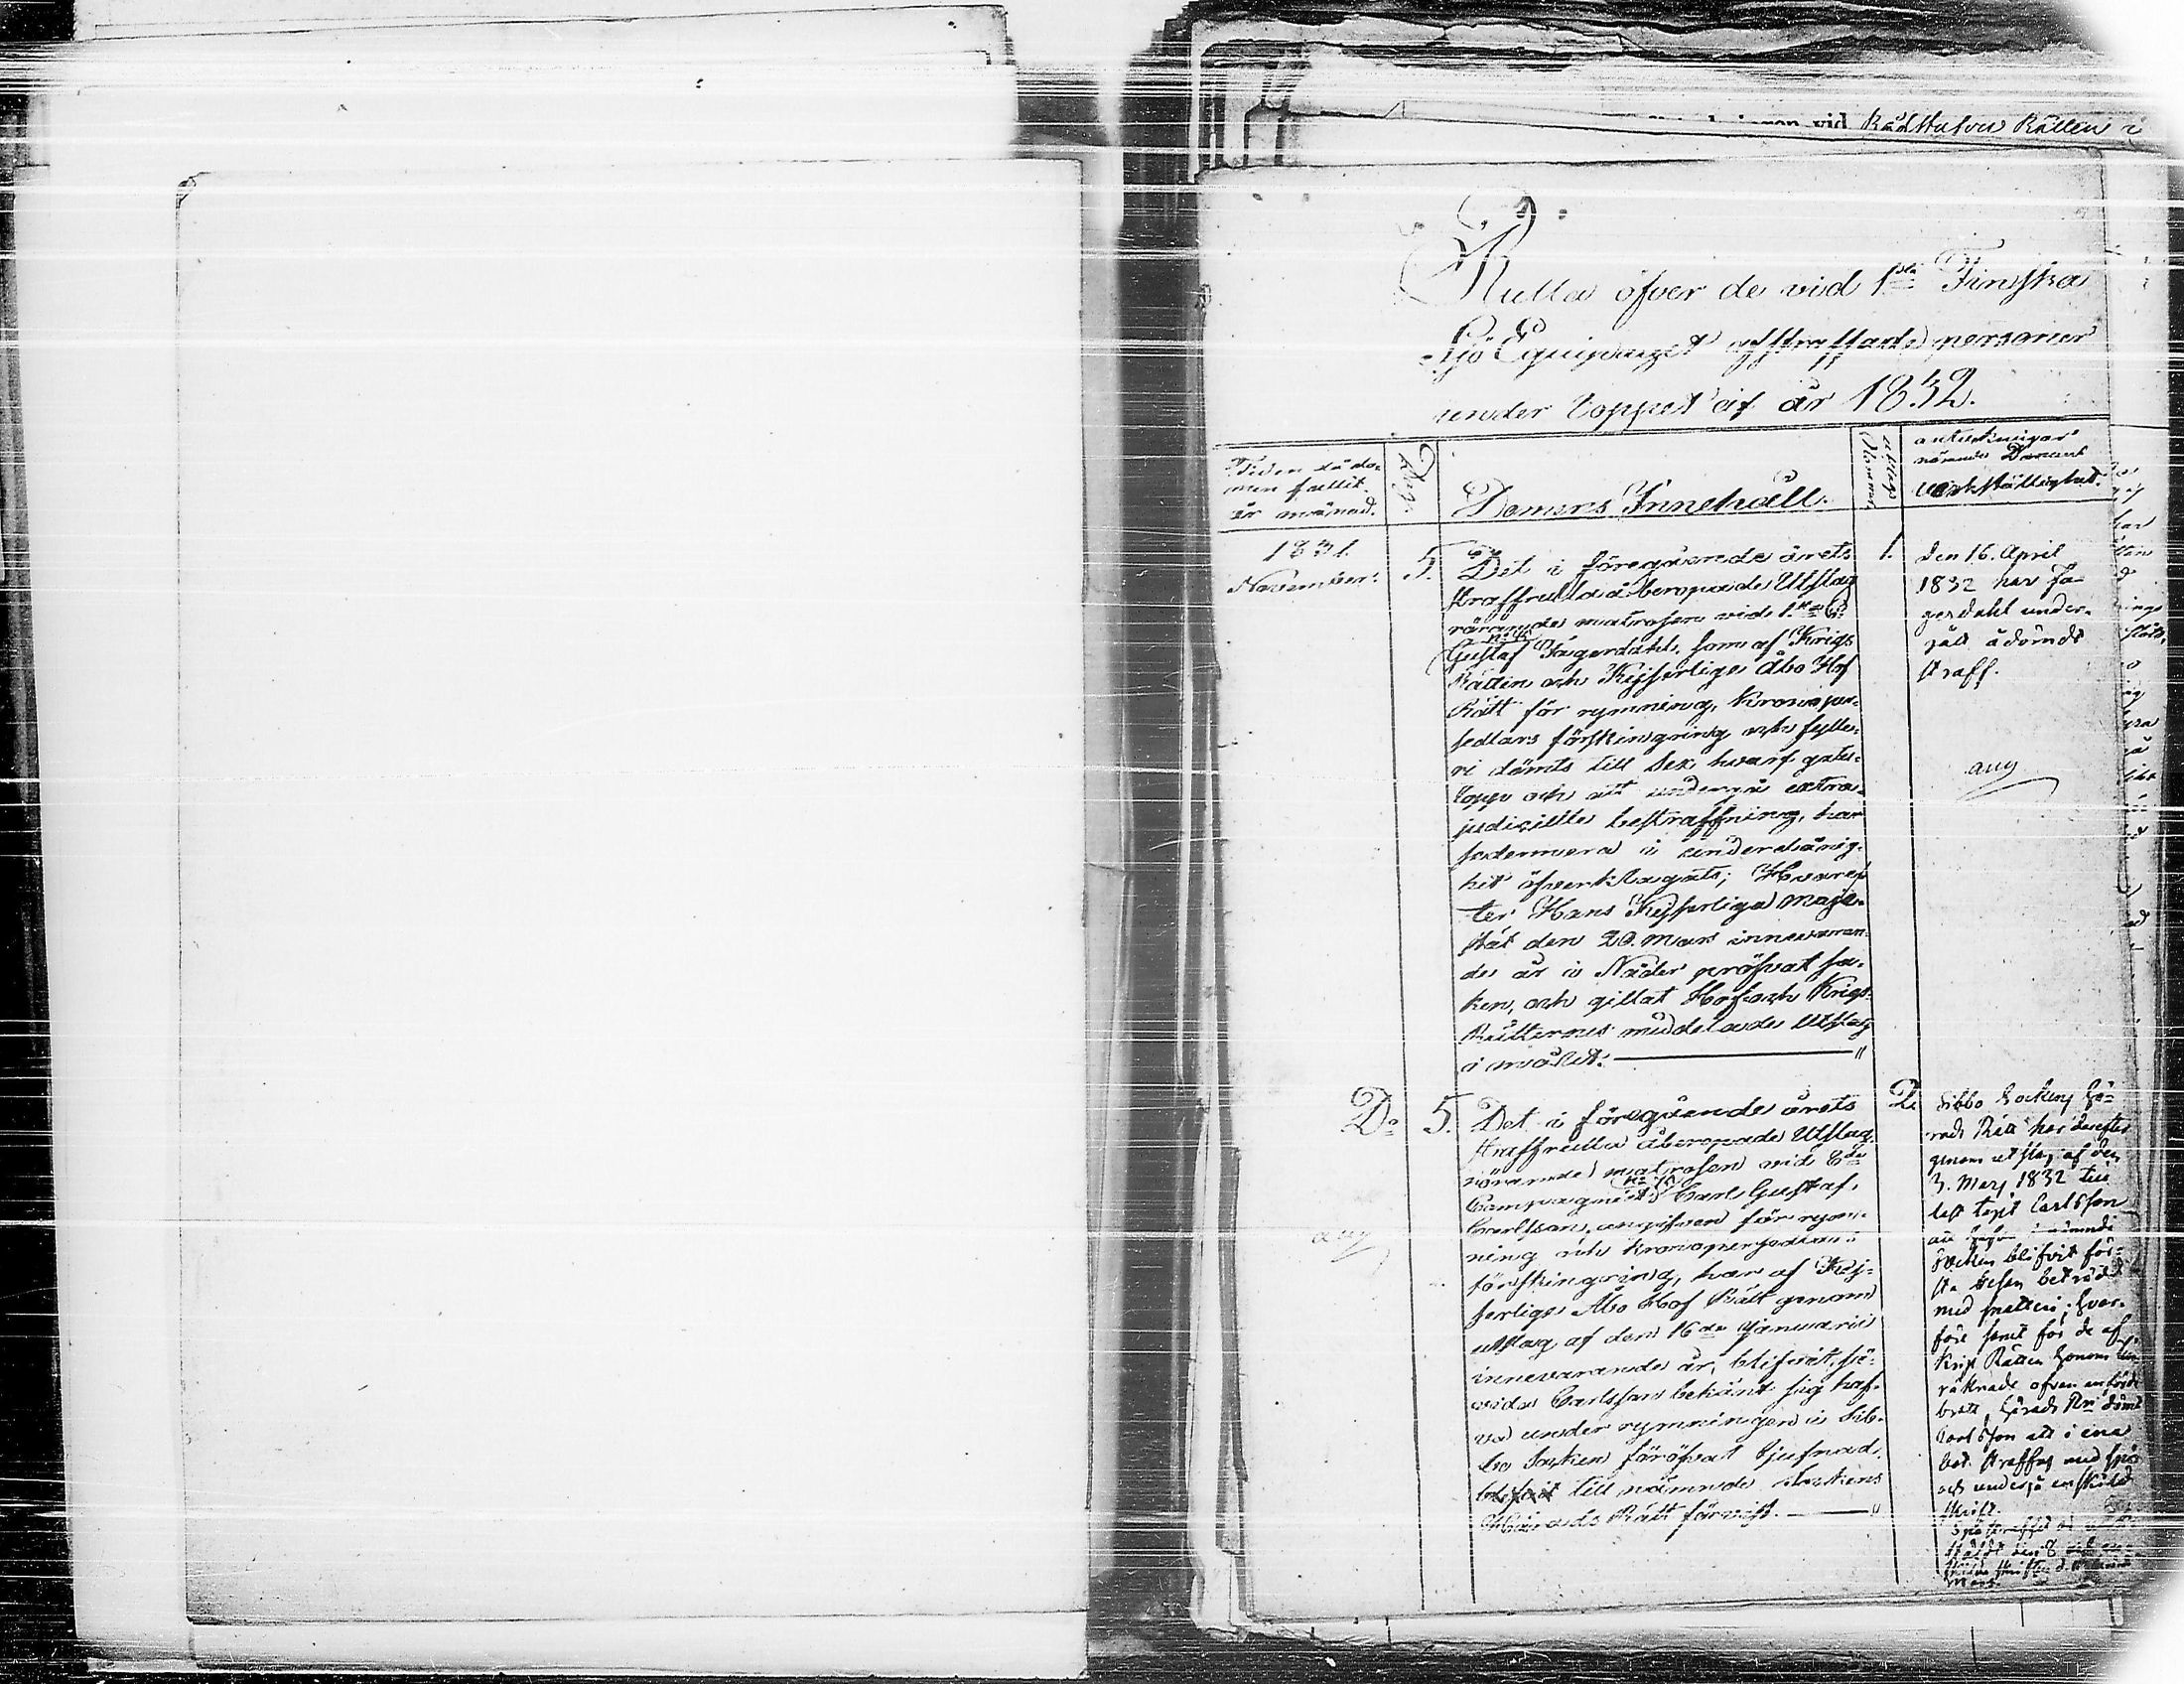 vid Rådstufvu Rätten i
Rulla öfver de vid 1sta Finska
Sjö Equipaget afstraffade personer
under loppet af år 1832.
Tiden då do-
men fallit.
år månad.
Dag.
Domens Innehåll.
antekningar
rörande Domens
verkställighet.
1831.
November.
5.
Det i föregående årets
straffrulla åberopade Utslag
rörande matrosen vid 1sta C:
Gustaf Fagerdahl, som af Krigs
Rätten och Kejserliga Åbo Hof
Rätt för rymning, kronoper-
sedlars förskingring och fylle-
ri dömts till sex hvarf gatu-
lopp och att undergå extra-
judiciella bestraffning, har
sedermera i underdånig-
het öfverklagats; Hvaref-
ter Hans Kejserliga Maje-
stät den 20. Mars innevaran-
de år i Nåder pröfvat sa-
ken, och gillat Hof och Krigs-
Rätternes meddelade Utslag
i målet.
1.
den 16. April
1832 har Fa-
gerdahl under-
gått ådömde
straff.
aug
Do
5.
Det i föregående årets
straffrulla åberopade Utslag
rörande matrosen vid 6te
Compagniet Carl Gustaf
Carlsson, angifven för rym-
ning och kronopersedlars
förskingring, har af Kej-
serliga Åbo Hof Rätt genom
utslag af den 16de Januarii
innevarande år, blifvit, så-
vida Carlsson bekänt sig haf-
va under rymningen i Sib-
bo Socken föröfvat tjufnad,
blifvit till nämnde Sockens
Härads Rätt förvist.
aug
2.
Sibbo Sockens Hä-
rads Rätt har derefter
genom utslag af den
3. Marj 1832
Carlsson
att i nämnde
Socken blifvit för-
sta resan beträdd
med snatteri; hvar-
före samt för de af
Krigs Rätten honom
räknade ofvan anförde
brott, Härads Rn dömt
Carlsson att i ena
bot straffas med spö
och undergå enskild
skrift.
Mars.